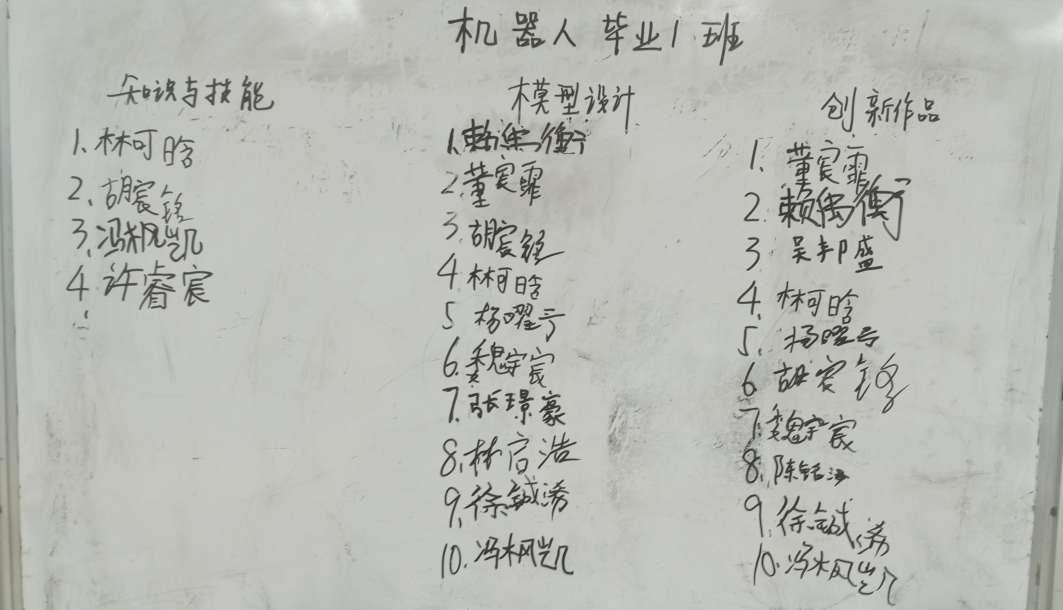 机器人毕业1班
知识与技能
1.林可晗
2.胡宸铭
3.冯枫凯
4.许睿宸
模型设计
1.赖禹衡
2.董宸霏
3.胡宸铭
4.林可晗
5 杨曜亏
6.魏宇宸
7.张璟豪
8.林启浩
9.徐铖浠
10.冯枫凯
创新作品
1.董宸霏
2.赖禹衡
3 吴邦盛
4.林可晗
5.杨曜亏
6 胡宸铭
7.魏宇宸
8.陈铭
9 徐铖浠
10.冯枫凯